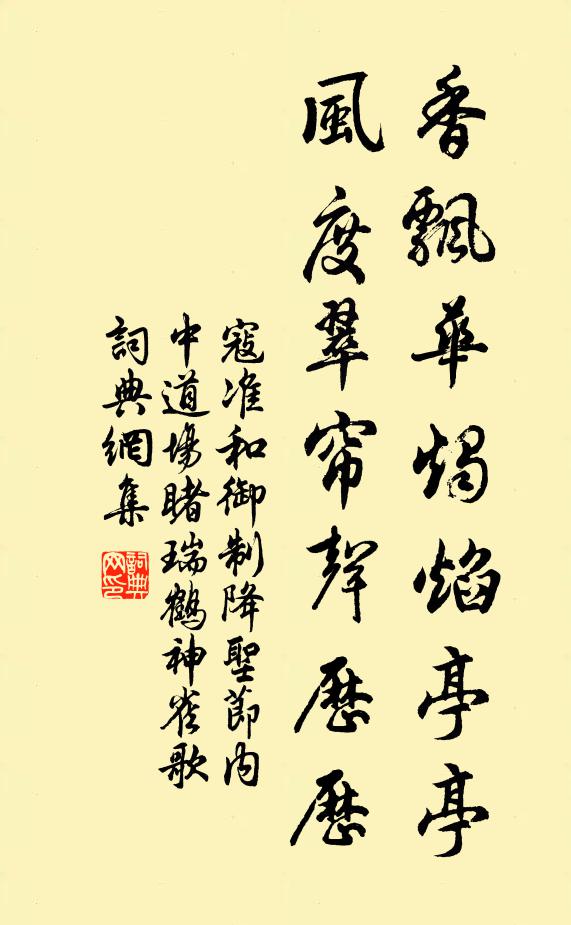 香飄華燭焰亭亭
風度翠帘聲歷歷
寇准和御制降聖節內
中道場睹瑞鶴神雀歌
詞典網集
詞典網印